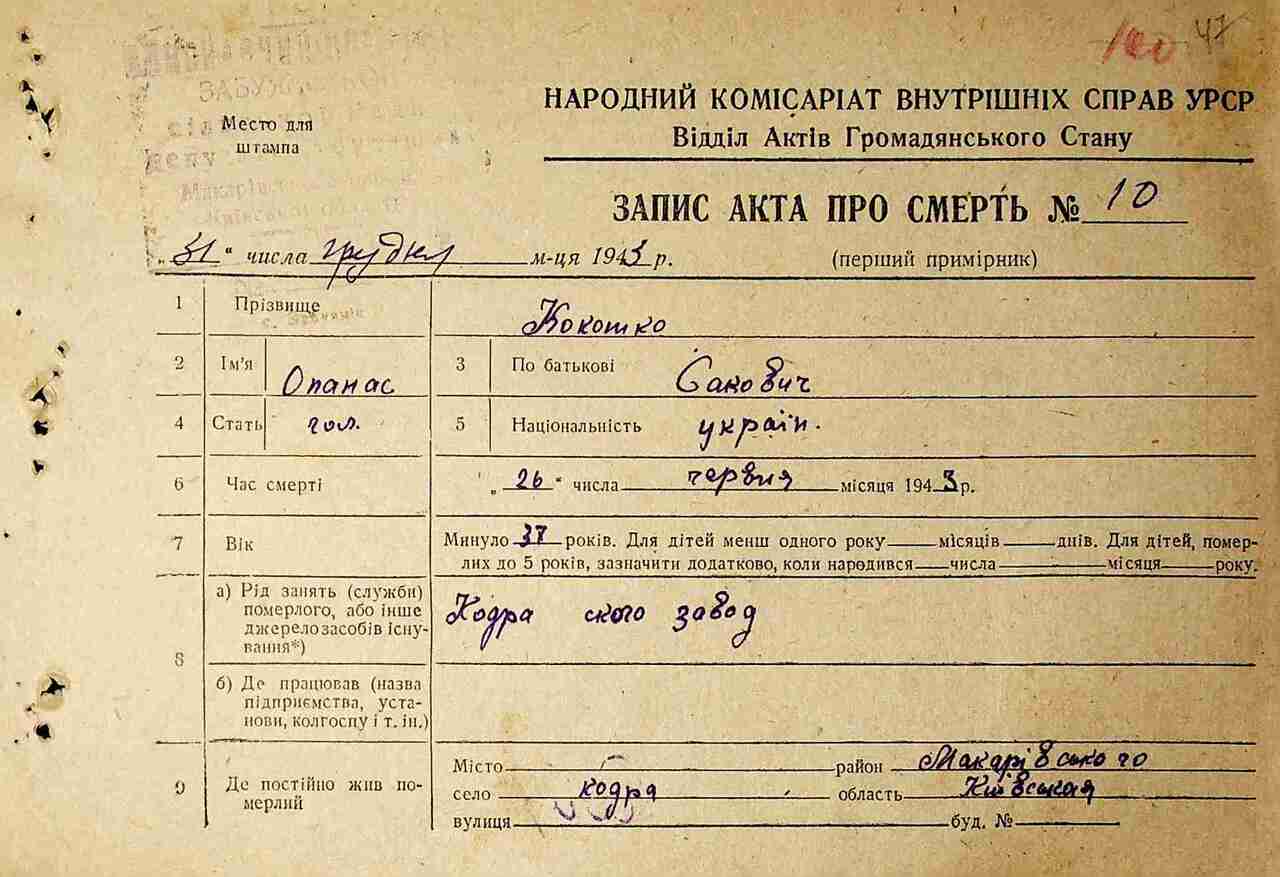 100 47
ЗАБУЯ
НАРОДНИЙ КОМІСАРІАТ ВНУТРІШНІХ СПРАВ УРСР
Відділ Актів Громадянського Стану
Место для
штампа
ЗАПИС АКТА ПРО СМЕРТЬ № 10
„31" числа грудня м-ця 1943 р. (перший примірник)
1 Прізвище Кокотко
2 Ім'я Опанас 3 По батькові Сакович
4 Стать чол. 5 Національність україн.
6 Час смерті „26" числа червня місяця 1943 р.
7 Вік Минуло 37 років. Для дітей менш одного року — місяців — днів. Для дітей, помер-
лих до 5 років, зазначити додатково, коли народився — числа — місяця — року.
8 а) Рід занять (служби)
померлого, або інше
джерело засобів існу-
вання*) Кодра ского завод
б) Де працював (назва
підприємства, уста-
нови, колгоспу і т. ін.)
9 Де постійно жив по-
мерлий
Місто — район Макарівського
село кодра область Київська
вулиця — буд. № —